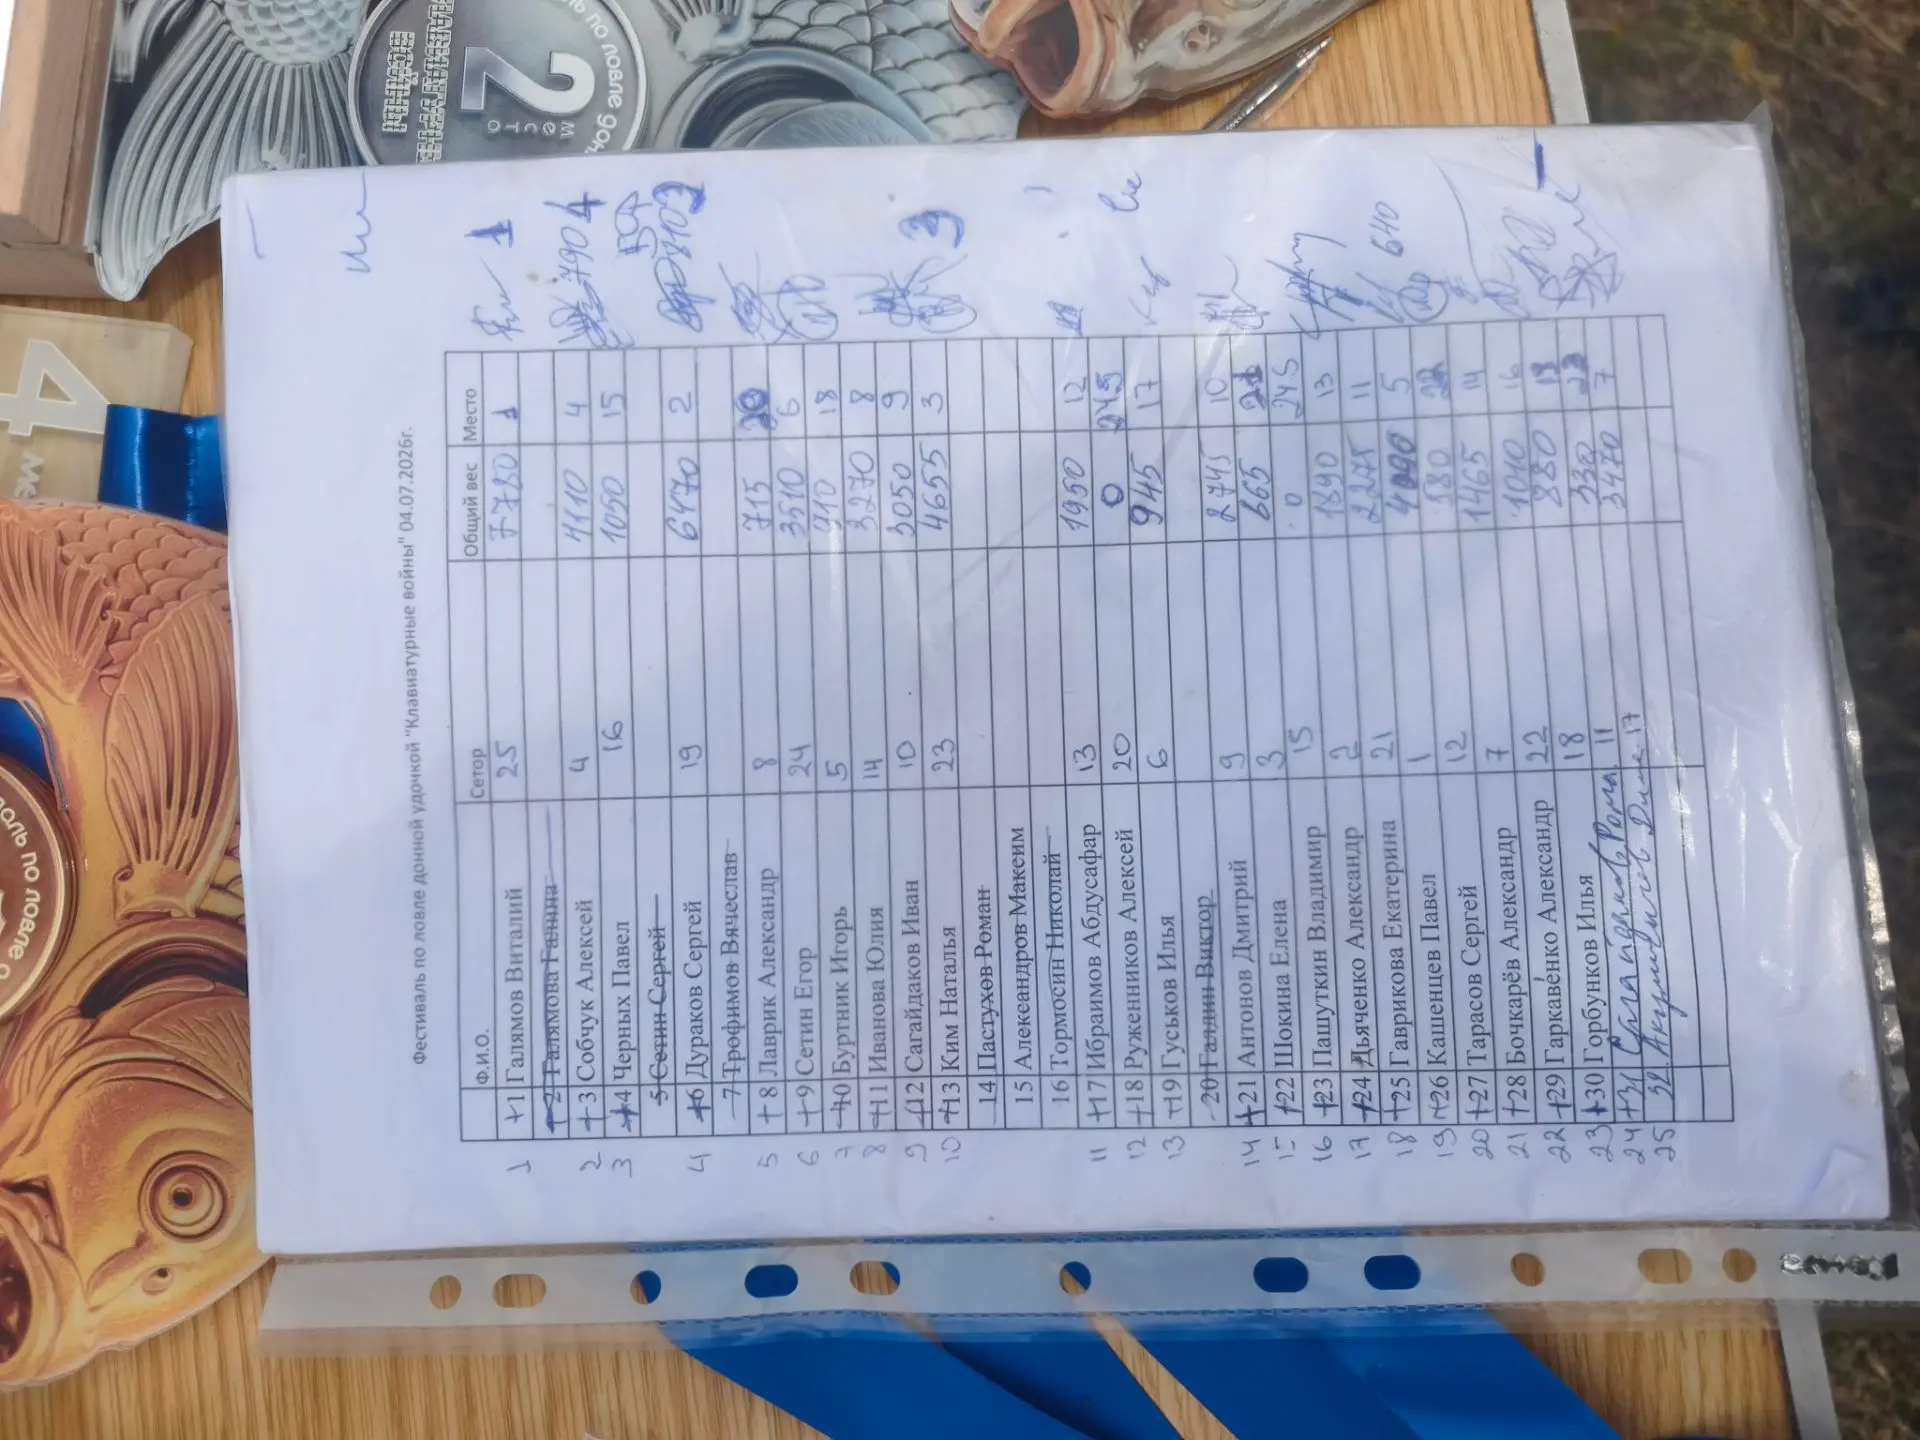 Фестиваль по ловле донной удочкой "Клавиатурные войны" 04.07.2026г.
Ф.И.О. Сетор Общий вес Место
1 +1 Галямов Виталий 25 7780 1 1
2 Галямова Галина
2 +3 Собчук Алексей 4 4110 4 790 4
3 +4 Черных Павел 16 1050 15
5 Сетин Сергей
4 +6 Дураков Сергей 19 6470 2 3103 2
7 Трофимов Вячеслав
5 +8 Лаврик Александр 8 715 20
6 +9 Сетин Егор 24 3510 6
7 +10 Буртник Игорь 5 910 18
8 +11 Иванова Юлия 14 3270 8
9 +12 Сагайдаков Иван 10 3050 9
10 +13 Ким Наталья 23 4655 3 3
14 Пастухов Роман
15 Александров Максим
16 Тормосин Николай
11 +17 Ибраимов Абдусафар 13 1950 12
12 +18 Руженников Алексей 20 0 24,5
13 +19 Гуськов Илья 6 945 17
20 Галдин Виктор
14 +21 Антонов Дмитрий 9 2745 10
15 +22 Шокина Елена 3 665 21
16 +23 Пашуткин Владимир 15 0 24,5
17 +24 Дьяченко Александр 2 1890 13
18 +25 Гаврикова Екатерина 21 2275 11
19 +26 Кашенцев Павел 1 4090 5 640
20 +27 Тарасов Сергей 12 580
21 +28 Бочкарёв Александр 7 1465 14
22 +29 Гаркавенко Александр 22 1010 16
23 +30 Горбунков Илья 18 880 19
24 +31 Рома 11 330
25 32. Дима 17 3470 7
2
место
по ловле
4
по ловле